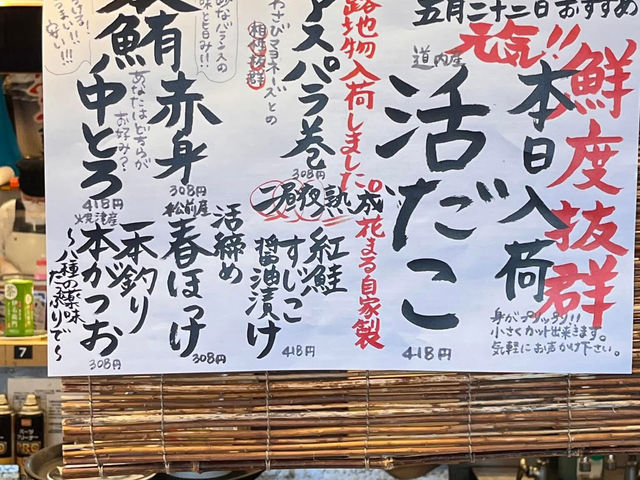 五月二十二日おすすめ
鮮度抜群
元気!!
本日入荷
道内産
活だこ
418円
身がプリップリ!!
小さくカット出来ます。
気軽にお声かけ下さい。
路地物入荷しました。
アスパラ巻
308円
わさびマヨネーズとの
相性抜群
二昼夜熟成
花まる自家製
紅鮭
すじこ
醤油漬け
418円
本鮪
赤身
308円
中とろ
418円
あなたはどちらが
お好み?
松前産
活締め
春ほっけ
308円
焼津産
一本釣り
本がつお
308円
~八種の薬味
たっぷりで~
7